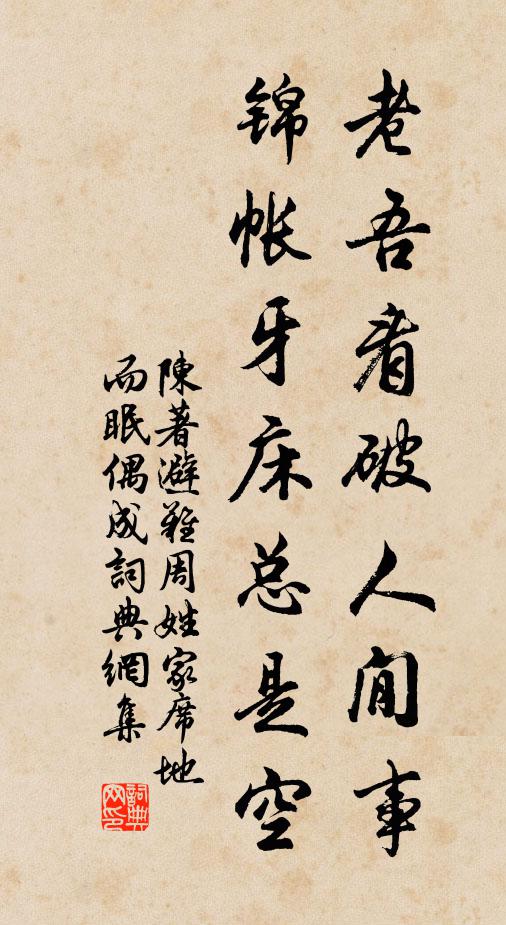 老吾看破人间事
锦帐牙床总是空
陳著避難周姓家席地
而眠偶成詞典網集
詞典
网印